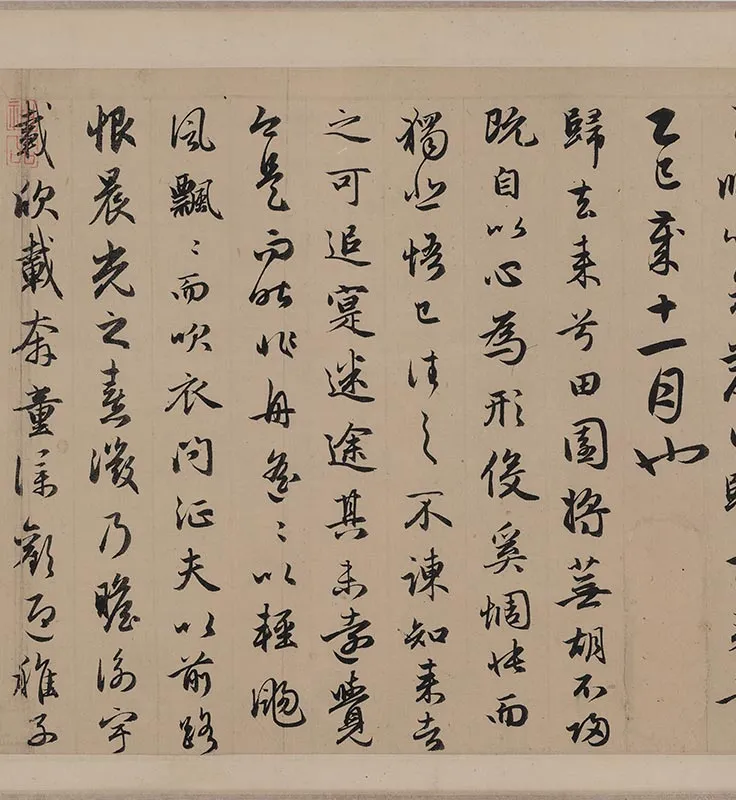 乙巳歲十一月也
歸去来兮田園将蕪胡不歸
既自以心為形役奚惆悵而
獨悲悟已往之不諫知来者
之可追寔迷途其未遠覺
今是而昨非舟遙〻以輕颺
風飄〻而吹衣問征夫以前路
恨晨光之熹微乃瞻衡宇
載欣載奔童僕歡迎稚子